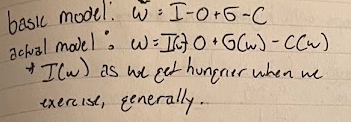 basic model: ẇ = I-O+G-C
actual model: ẇ = I(w)-O+G(w)-C(w)
* I(w) as we get hungrier when we
exercise, generally.